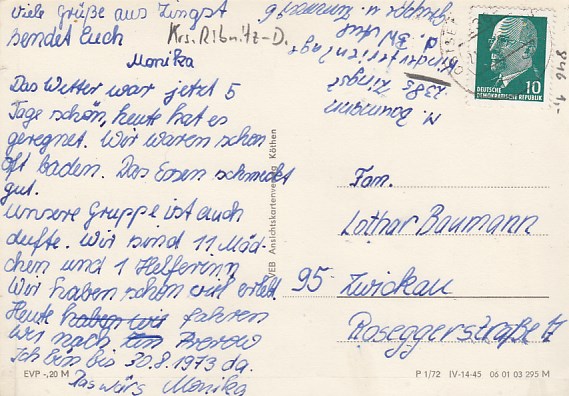 Viele Grüße aus Zingst
sendet Euch
Monika
Krs. Ribnitz-D.
Das Wetter war jetzt 5
Tage schön, heute hat es
geregnet. Wir waren schon
oft baden. Das Essen schmeckt
gut.
Unsere Gruppe ist auch
dufte. Wir sind 11 Mäd-
chen und 1 Helferinn
Wir haben schon viel erlebt.
Heute haben wir fahren
wir nach Prerow
Ich bin bis 30.8.1973 da.
Das wärs Monika
M. Baumann
2385 Zingst
Kinderferienlager
DEUTSCHE
DEMOKRATISCHE REPUBLIK
10
846 1,-
VEB Ansichtskartenverlag Köthen
Fam.
Lothar Baumann
95 Zwickau
Roseggerstraße 7
EVP -,20 M
P 1/72 IV-14-45 06 01 03 295 M